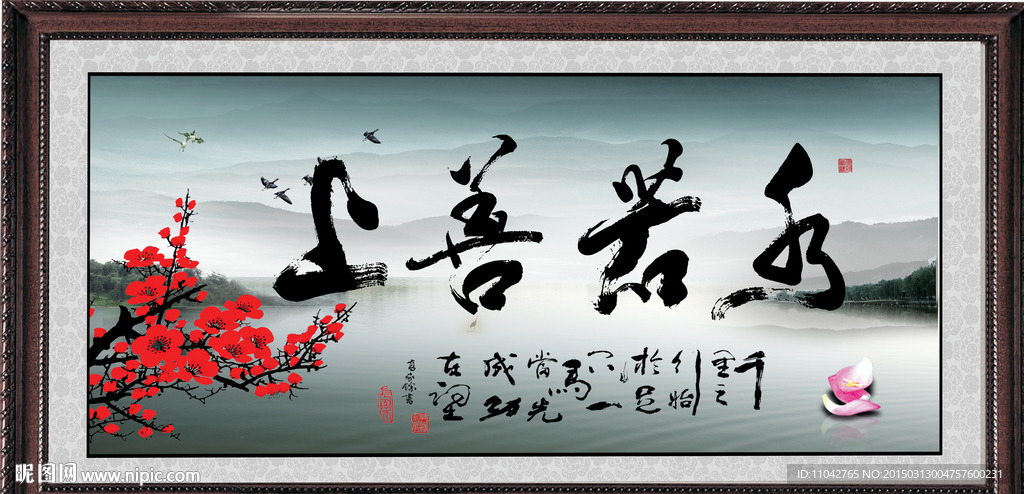 上善若水
千
里之
行始
於足
下一
馬
當先
成功
在望
昵图网 www.nipic.com
ID:11042765 NO:20150313004757600231